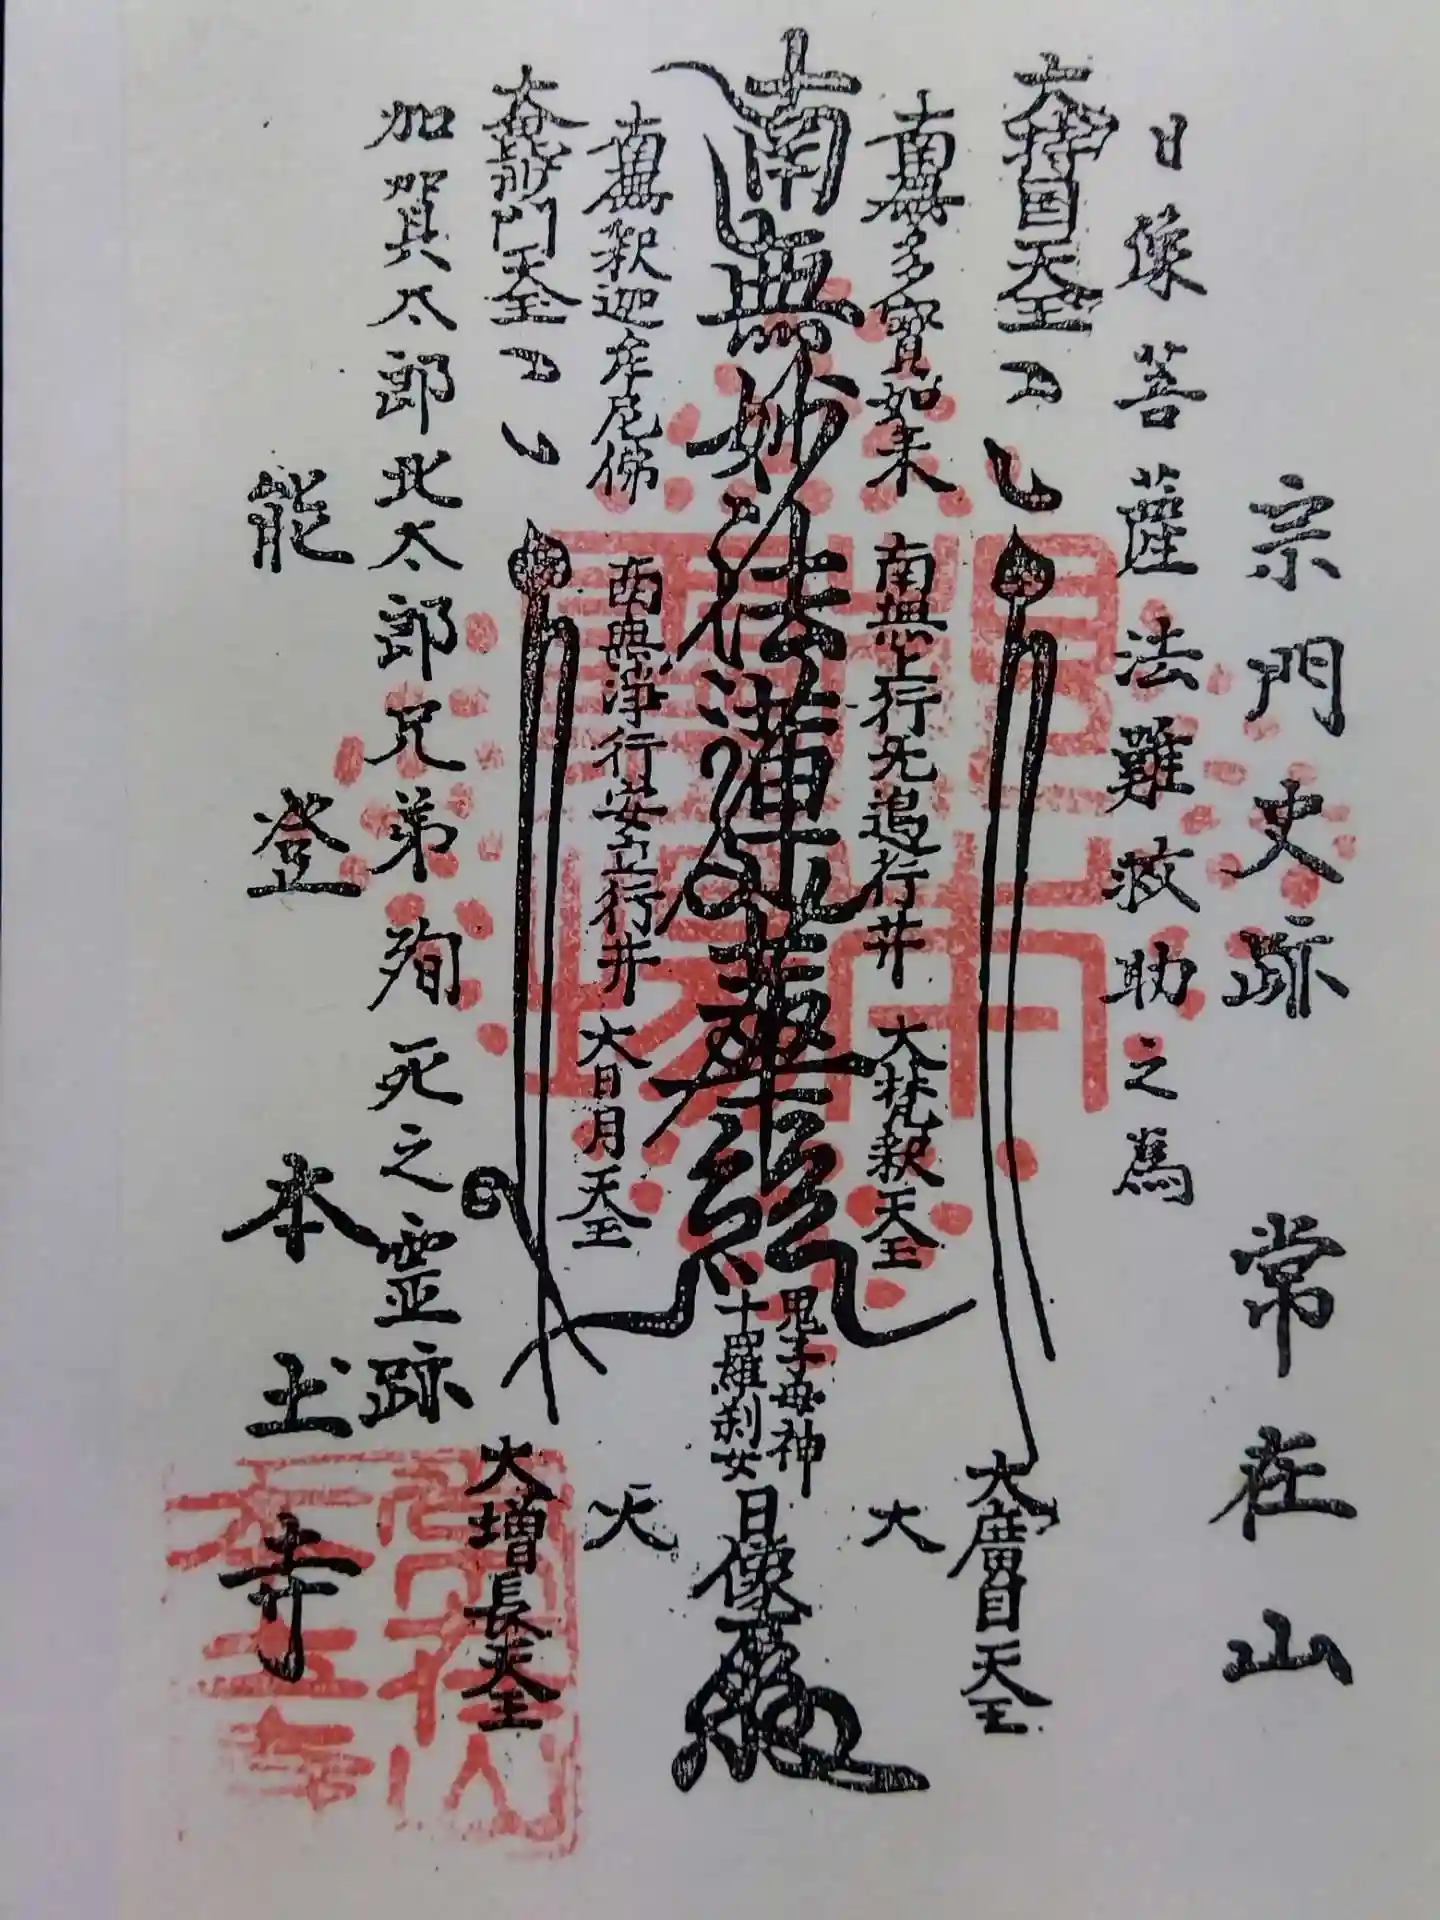 宗門史跡 常在山
日像菩薩法難救助之為
大持国天王
大廣目天王
南無多寶如来
南無上行无邊行菩
大梵釈天王
大
南無妙法蓮華経
鬼子母神
十羅刹女
日像
南無釈迦牟尼佛
南無浄行安立行菩
大日月天王
天
大毘沙門天王
大増長天王
加賀太郎北太郎兄弟殉死之霊跡
能登 本土寺